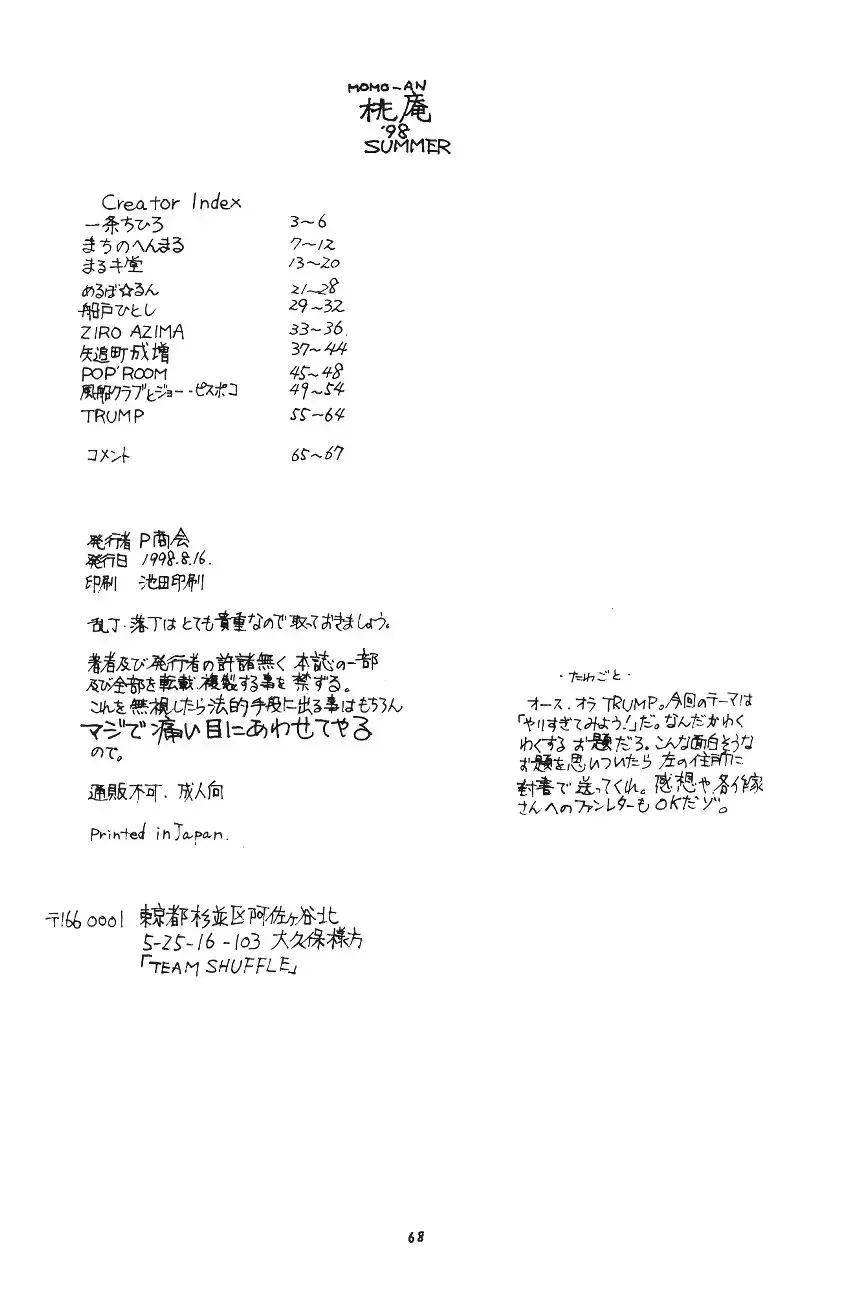 MOMO-AN
桃庵
'98
SUMMER
Creator Index
一条ちひろ 3~6
まちのへんまる 7~12
まるキ堂 13~20
めるば☆るん 21~28
船戸ひとし 29~32
ZIRO AZIMA 33~36.
矢追町成増 37~44
POP'ROOM 45~48
風船クラブとジョー・ピスポコ 49~54
TRUMP 55~64
コメント 65~67
発行者 P商会
発行日 1998.8.16.
印刷 池田印刷
乱丁・落丁はとても貴重なので取っておきましょう。
著者及び発行者の許諾無く本誌の一部
及び全部を転載、複製する事を禁ずる。
これを無視したら法的手段に出る事はもちろん
マジで痛い目にあわせてやる
ので。
通販不可、成人向
Printed in Japan.
〒166 0001 東京都杉並区阿佐ヶ谷北
5-25-16-103 大久保様方
「TEAM SHUFFLE」
・たわごと・
オース、オラTRUMP。今回のテーマは
「やりすぎてみよう!」だ。なんだかわく
わくするお題だろ。こんな面白そうな
お題を思いついたら左の住所に
封書で送ってくれ。感想や各作家
さんへのファンレターもOKだゾ。
68